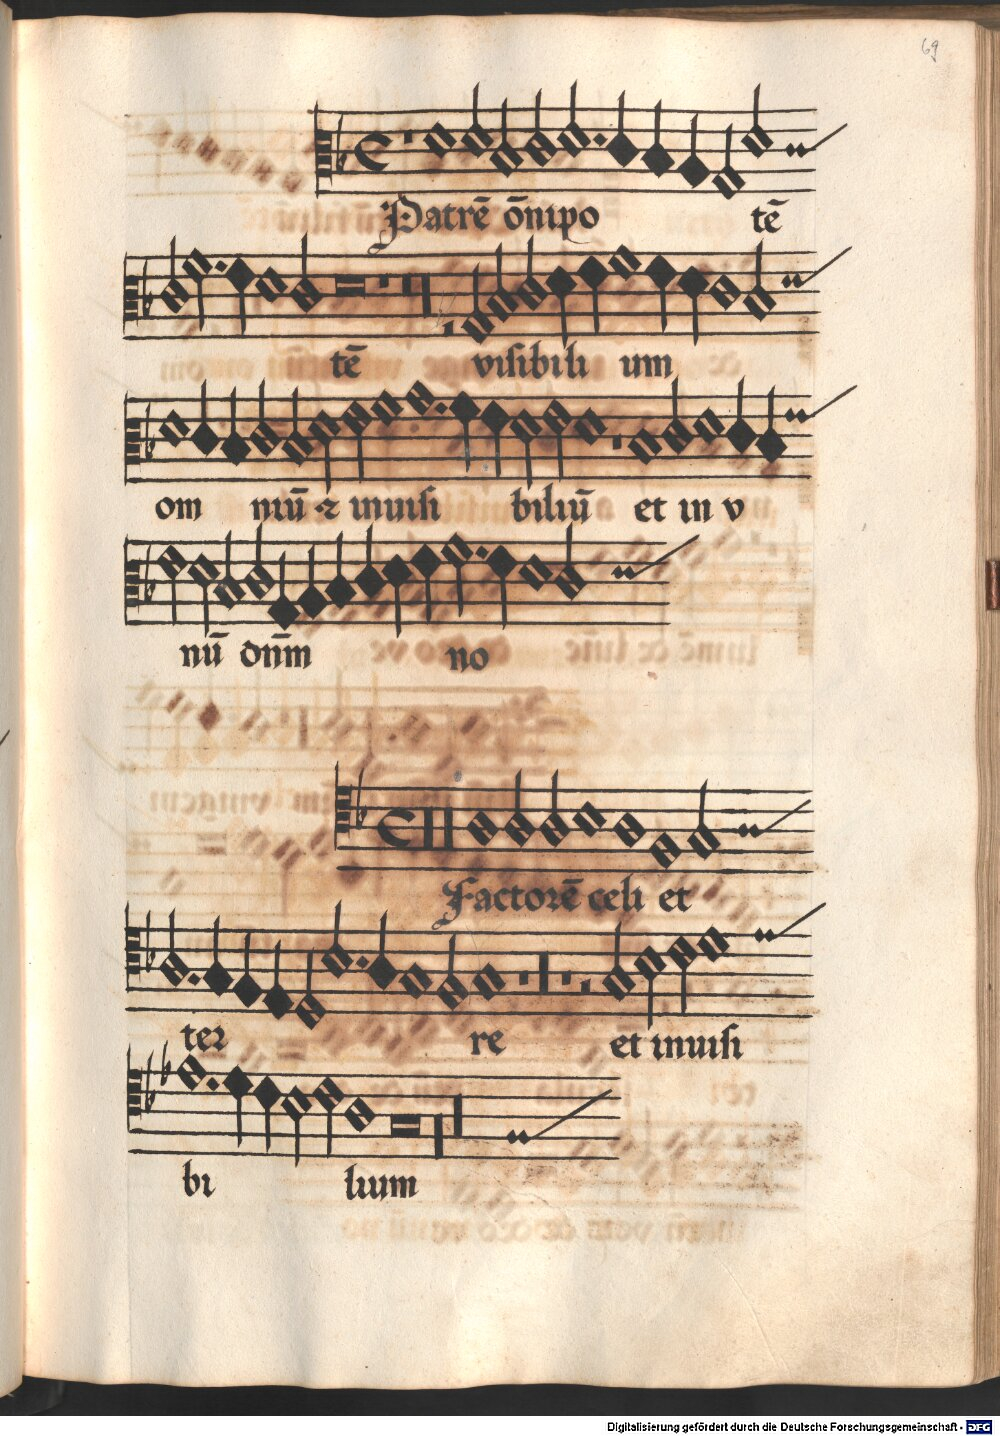 69
Patrē ōnipo tē
tē visibili um
om niū ⁊ inuisi biliū et in v
nū dn̄m no
Factorē celi et
ter re et inuisi
bi lium
Digitalisierung gefördert durch die Deutsche Forschungsgemeinschaft - DFG